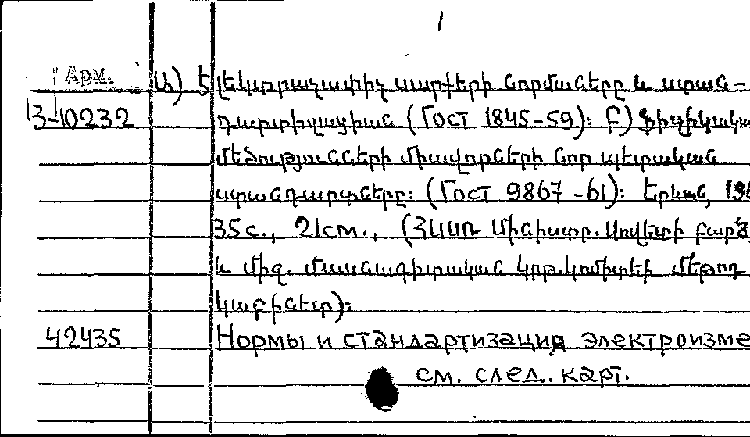 1
Арм. Ա) Էլեկտրաչափիչ սարքերի նորմաները և ստան-
13-10232 դարտիզացիան (Гост 1845-59)։ Բ) Ֆիզիկակա
մեծությունների միավորների նոր պետական
ստանդարտները։ (Гост 9867-61)։ Երևան, 196
35с., 21см., (ՀՍՍՌ Մինիստր. Սովետի բարձ
և միջ. մասնագիտական կրթ. կոմիտեի մեթոդ
կաբինետ)։
42435 Нормы и стандартизация электроизме
см. след. карт.